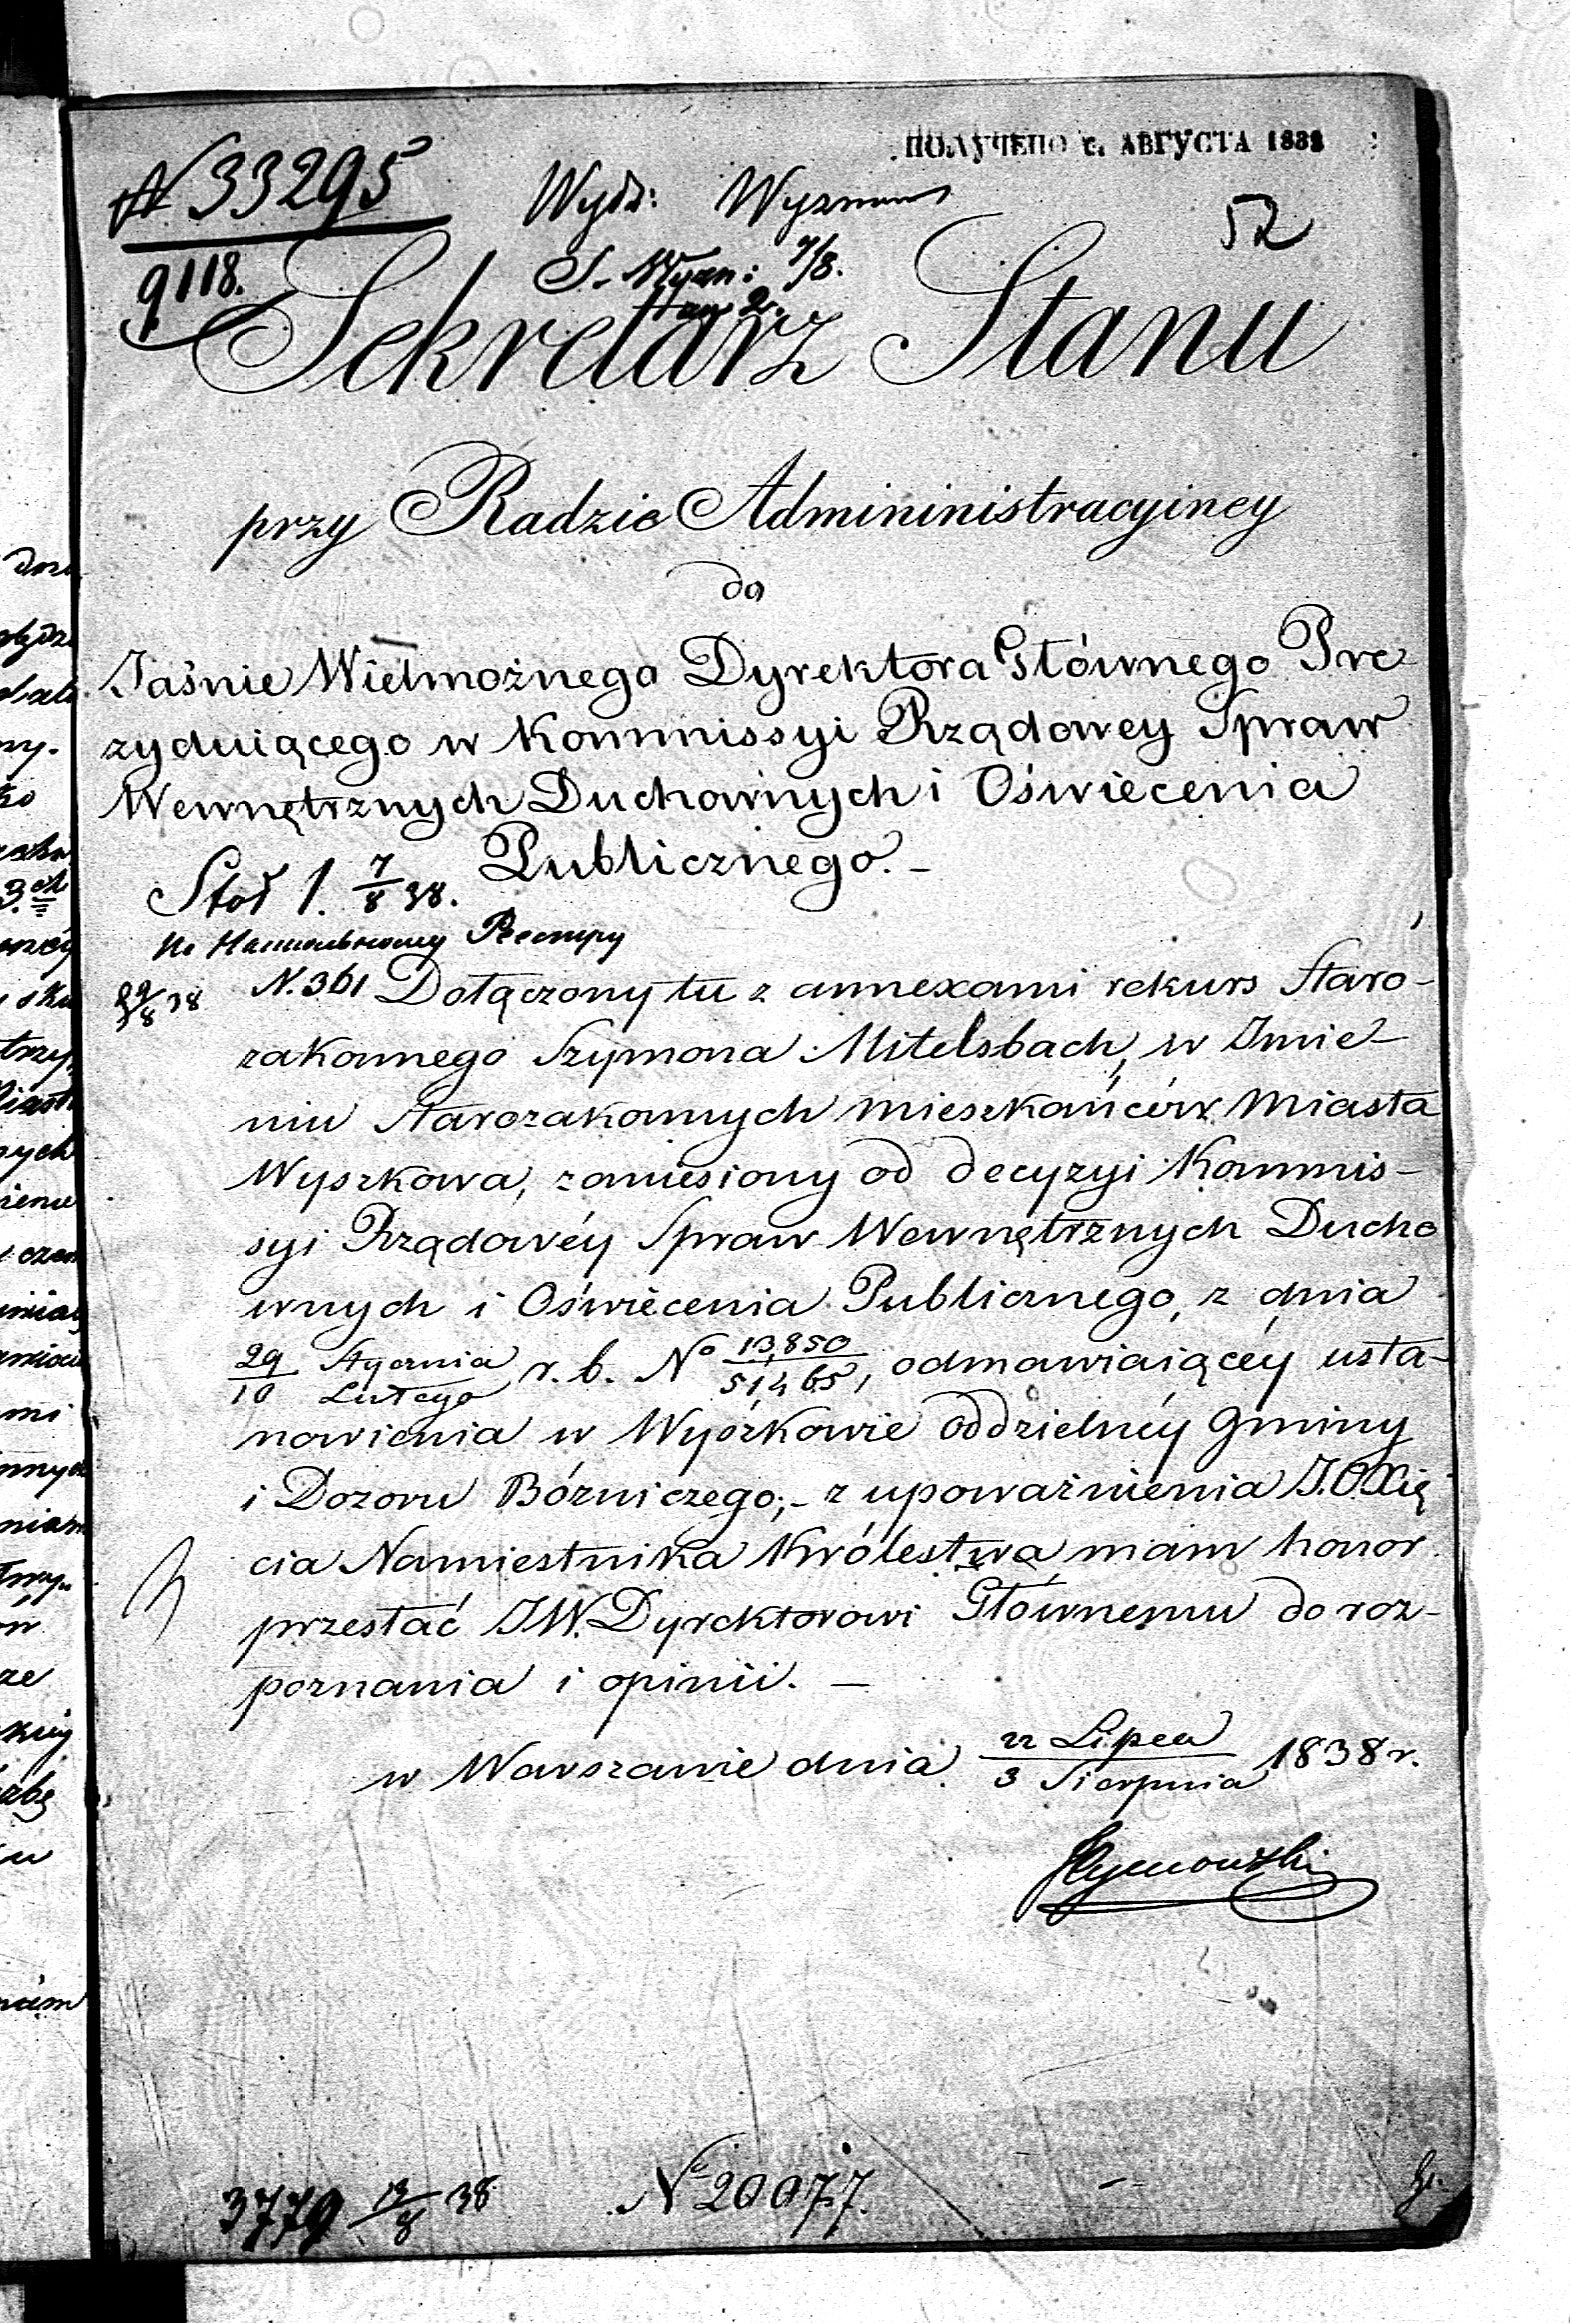 ПОЛУЧЕНО АВГУСТА 1838
N 33295
9118.
Wydz: Wyznań
52
S. Wyzn: 7/8.
Sekretarz Stanu
przy Radzie Admininistracyiney
do
Jaśnie Wielmożnego Dyrektora Głównego Pre
zyduiącego w Kommissyi Rządowey Spraw
Wewnętrznych Duchownych i Oświecenia
Publicznego. -
Stoł 1. 7/8 38.
N. 361 Dołączony tu z annexami rekurs Staro-
zakonnego Szymona Mitelsbach, w Imie-
niu Starozakonnych Mieszkańców Miasta
Wyszkowa, zaniesiony od decyzyi Kommis-
syi Rządowéy Spraw Wewnętrznych Ducho
wnych i Oświecenia Publicznego, z dnia
29 Stycznia / 10 Lutego r. b. No 13,850 / 51465, odmawiaiącéy usta-
nowienia w Wyszkowie oddzielnéy Gminy
i Dozoru Bózniczego; - z upoważnienia J.O. Xię
cia Namiestnika Królestwa mam honor
przesłać JW. Dyrektorowi Głównemu do roz-
poznania i opinii. -
w Warszawie dnia 22 Lipca / 3 Sierpnia 1838 r.
3779 13/8 38
No 20077.